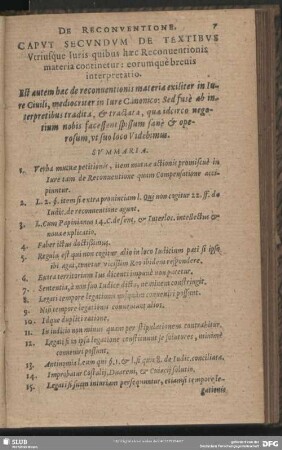 DE RECONVENTIONE. 7
CAPVT SECVNDVM DE TEXTIBVS
Vtriusque Iuris quibus hæc Reconuentionis
materia continetur: eorumque breuis
interpretatio.
Est autem hæc de reconuentionis materia exiliter in Iu-
re Ciuili, mediocriter in Iure Canonico: Sed fusè ab in-
terpretibus tradita, & tractata, quæ idcirco nego-
tium nobis facessent spissum sanè & ope-
rosum, vt suo loco Videbimus.
SVMMARIA.
1. Verba mutuæ petitionis, item mutuæ actionis promiscuè in
Iure tam de Reconuentione quàm Compensatione acci-
piuntur.
2. L. 2. §. item si extra prouinciam l. Qui non cogitur 22. ff. de
Iudic. de reconuentione agunt.
3. L. Cum Papinianus 14. C. de sent. & Interloc. intellectus &
noua explicatio.
4. Faber ictus doctissimus.
5. Regula est qui non cogitur alio in loco Iudicium pati si ipse
ibi agat, tenetur vicissim Reo ibidem respondere.
6. Extra territorium Ius dicenti impunè non paretur.
7. Sententia, à non suo Iudice dicta, neminem constringit.
8. Legati tempore legationis nusquam conueniri possunt.
9. Nisi tempore legationis conueniant
10. Idque duplici ratione.
11. In iudicio non minus quàm per stipulationem contrahitur.
12. Legati si in ipsa legatione constituunt se soluturos, minimè
conueniri possunt.
13. Antinomia l. eum qui §. 1. & l. si quis §. de Iudic. conciliata.
14. Improbatur Castulij, Duareni, & Cuiacij solutio.
15. Legati si suam iniuriam persequuntur, etiamsi tempore le-
gationis
SLUB
DFG